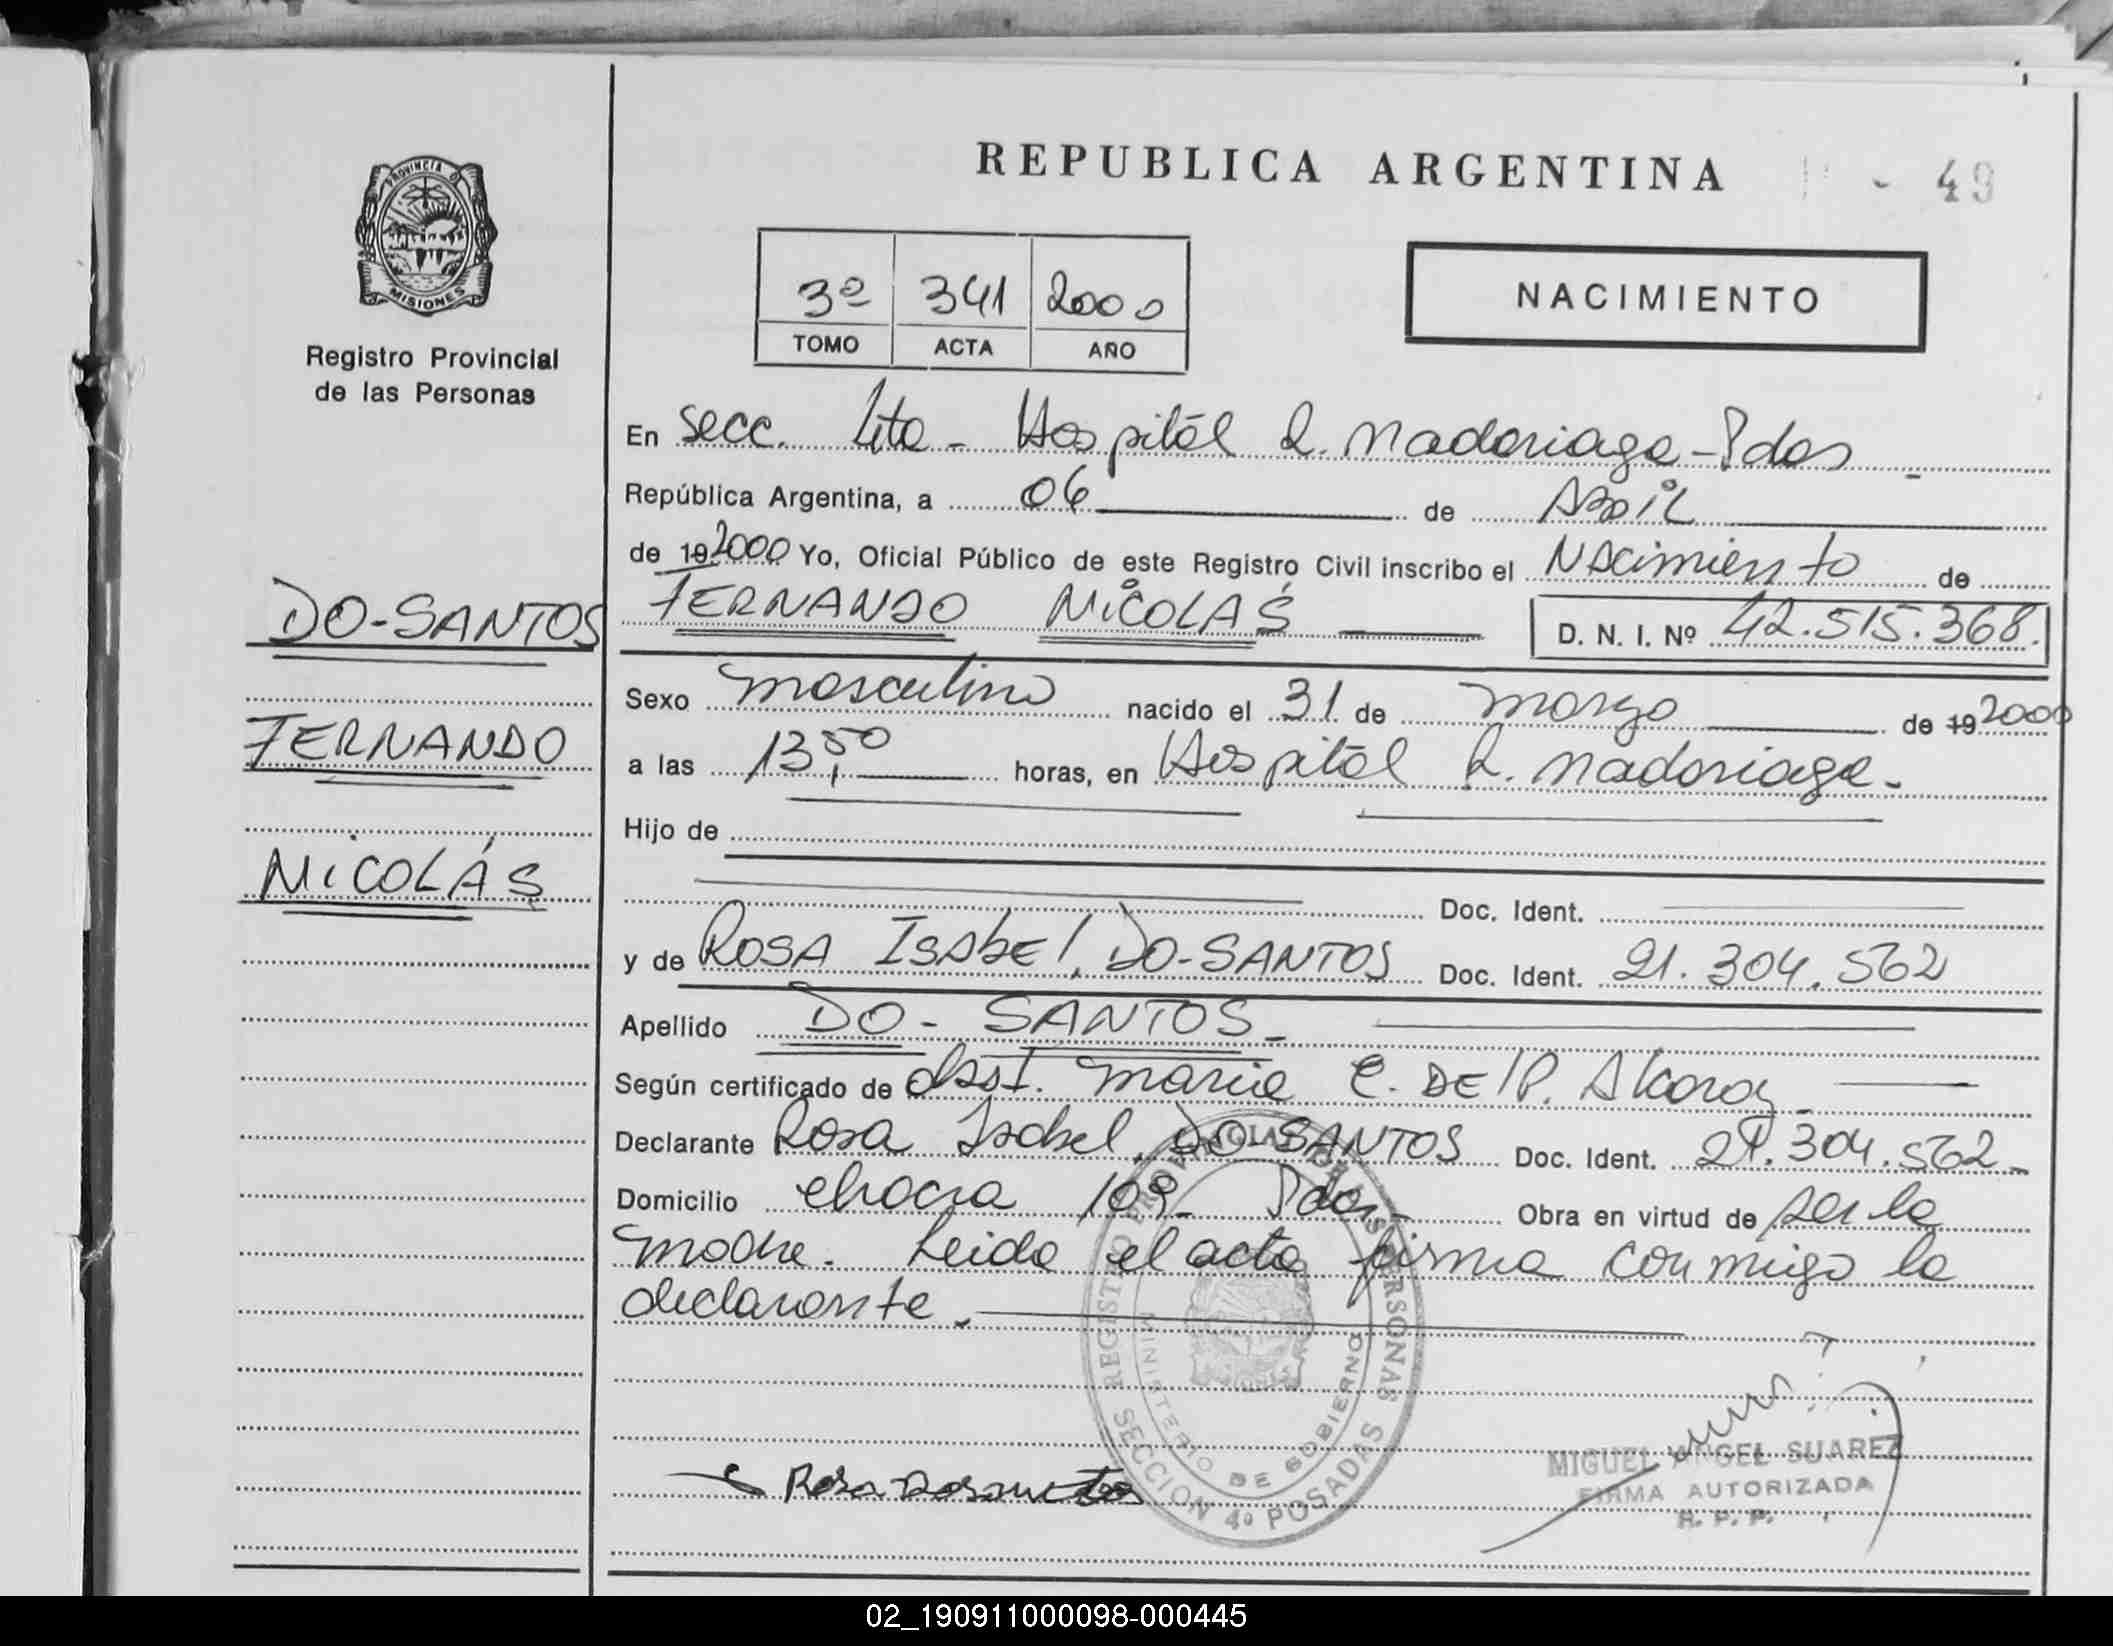 REPUBLICA ARGENTINA
- 49
PROVINCIA D
MISIONES
Registro Provincial
de las Personas
3º 341 2000
TOMO ACTA AÑO
NACIMIENTO
En secc. 4ta - Hospital R. Madariaga - Pdas -
República Argentina, a 06 de Abril
de 19 2000 Yo, Oficial Público de este Registro Civil inscribo el Nacimiento de
DO-SANTOS
FERNANDO NICOLÁS D. N. I. Nº 42.515.368.
Sexo masculino nacido el 31 de marzo de 19 2000
FERNANDO
a las 13,50 horas, en Hospital R. Madariaga -
Hijo de
NICOLÁS
Doc. Ident.
y de ROSA ISABEL, DO-SANTOS Doc. Ident. 21.304.562
Apellido DO - SANTOS -
Según certificado de obst. Maria E. DE P. Alcaraz
Declarante Rosa Isabel, DO SANTOS Doc. Ident. 21.304.562 -
Domicilio chacra 109 - Pdas - Obra en virtud de ser la
madre. Leida el acta firma conmigo la
declarante.
REGISTRO PROVINCIAL DE LAS PERSONAS
MINISTERIO DE GOBIERNO
SECCION 4º POSADAS
Rosa Dosantos
MIGUEL ANGEL SUAREZ
FIRMA AUTORIZADA
R. P. P.
02_190911000098-000445